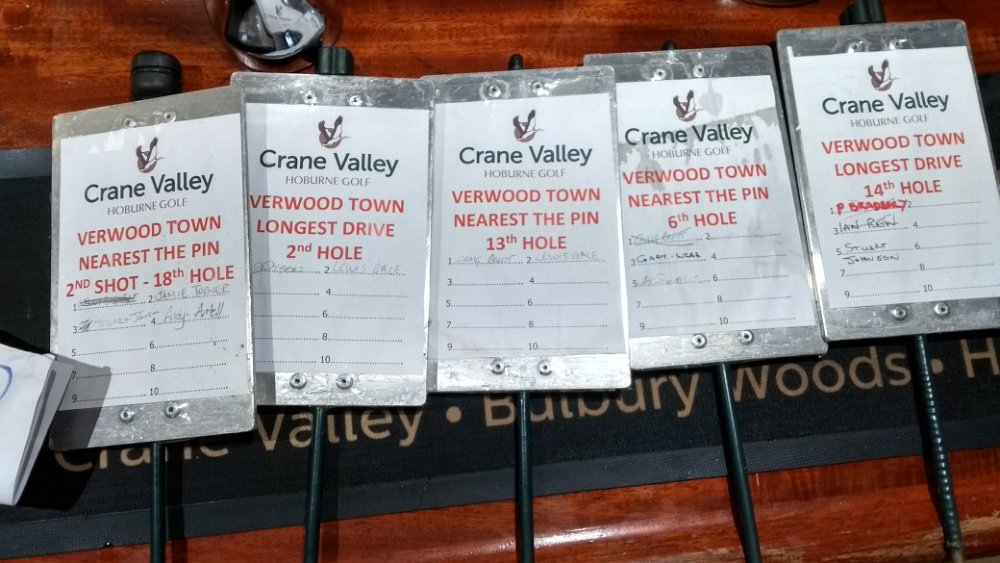 Crane Valley
HOBURNE GOLF
VERWOOD TOWN
NEAREST THE PIN
2ND SHOT - 18th HOLE
1 2 JAMIE TURNER
3 4 Andy Axtell
5 6
7 8
9 10
Crane Valley
HOBURNE GOLF
VERWOOD TOWN
LONGEST DRIVE
2nd HOLE
1 2 LEWIS GALE
3 4
5 6
7 8
9 10
Crane Valley
HOBURNE GOLF
VERWOOD TOWN
NEAREST THE PIN
13th HOLE
1 CRAIG 2 LEWIS GALE
3 4
5 6
7 8
9 10
Crane Valley
HOBURNE GOLF
VERWOOD TOWN
NEAREST THE PIN
6th HOLE
1 2
3 GARY WEBB 4
5 6
7 8
9 10
Crane Valley
HOBURNE GOLF
VERWOOD TOWN
LONGEST DRIVE
14th HOLE
1 P BRADBERY 2
3 IAN REN 4
5 STUART JOHNSON 6
7 8
9 10
Crane Valley • Bulbury Woods • H